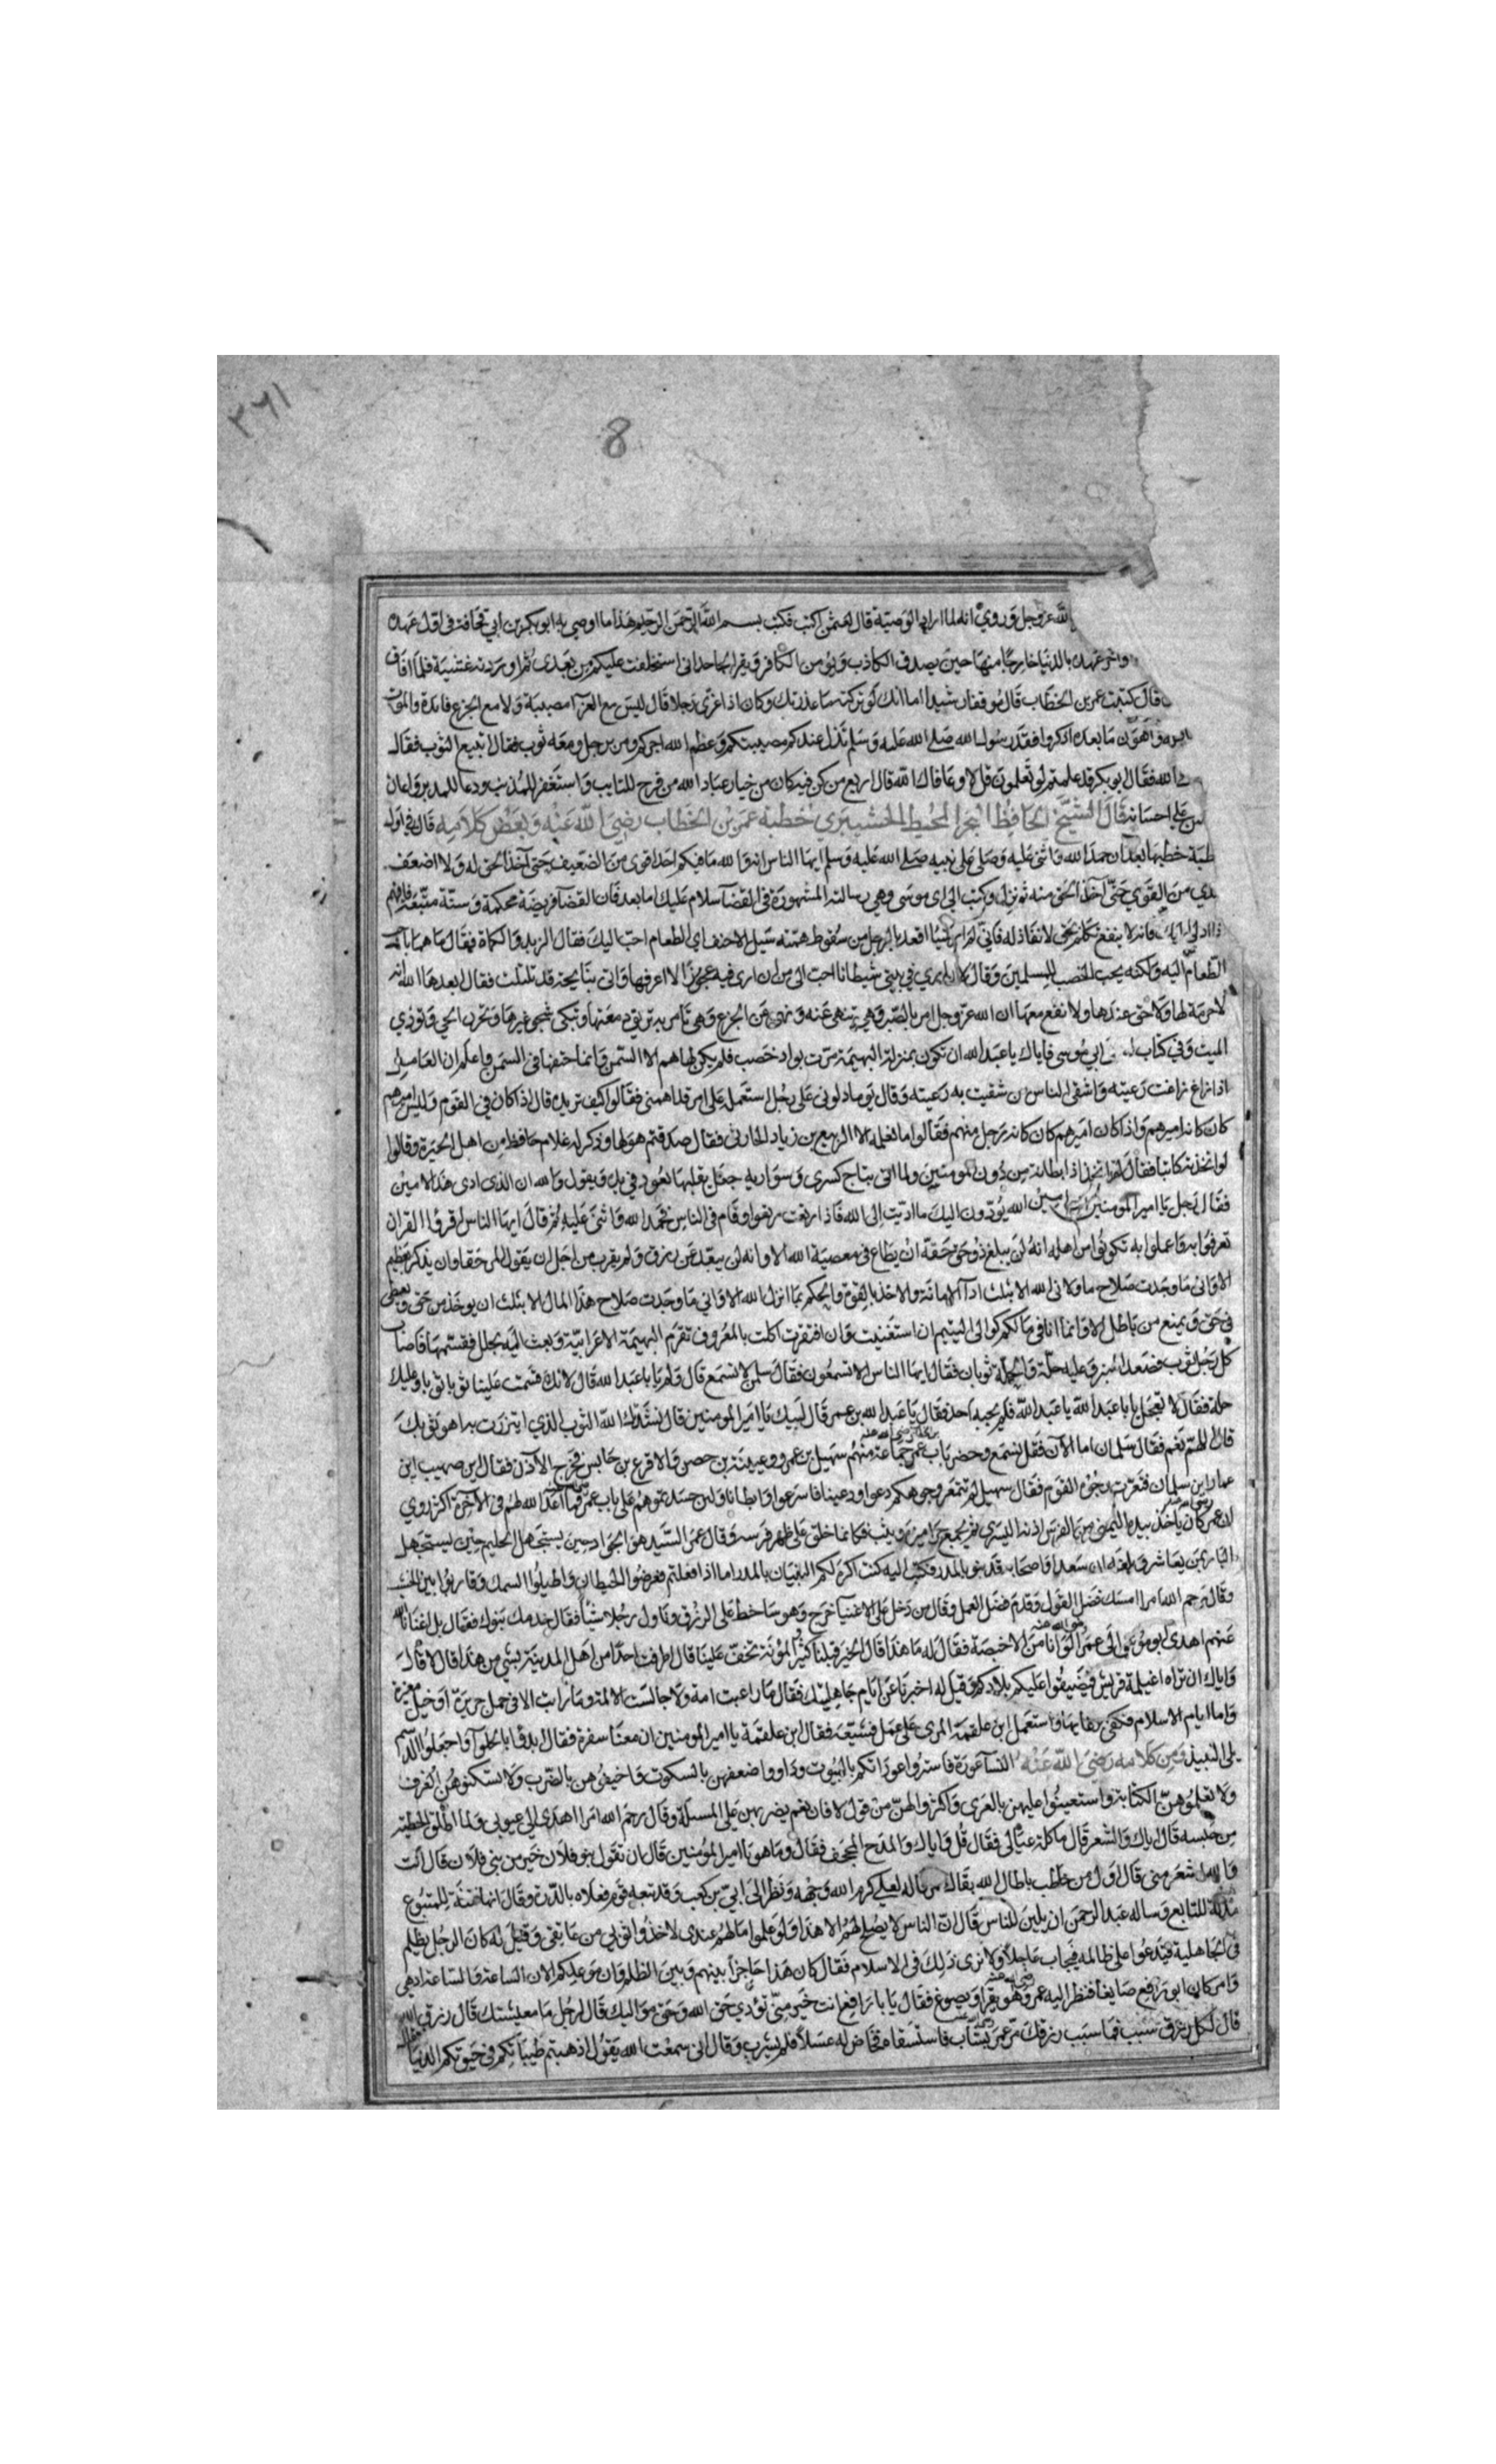 ٣٦١
8
الله عز وجل وروي انه لما اراد الوصية قال لعثمن اكتب فكتب بسم الله الرحمن الرحيم هذا ما اوصي به ابو بكر بن ابي قحافة في اول عهده
واخر عهده بالدنيا خارجا منها حين يصدق الكاذب ويؤمن الكافر ويقر الجاحد اني استخلفت عليكم من بعدي ثم غشية فلما افاق
قال كتبت عمر بن الخطاب قال موفقا رشيدا اما انك لو تركته ما عذرتك وكان اذا عزي رجلا قال ليس مع العزآ مصيبة ولا مع الجزع فائدة والموت
واهون ما بعده اذكروا فقد رسول الله صلى الله عليه وسلم تذل عندكم مصيبتكم وعظم الله اجركم ومر برجل ومعه ثوب فقال اتبيع الثوب فقال
الله فقال ابو بكر قد علمتم لو تعلمون قل لا وعافاك الله قال اربع من كن فيه كان من خيار عباد الله من فرح للتايب واستغفر للمذنب ودعا للمدبر واعان
علي احسانه قال الشيخ الحافظ البحر المحيط خطبة عمر بن الخطاب رضي الله عنه وبعض كلامه قال في اول
خطبها بعد ان حمد الله واثنى عليه وصلى على نبيه صلى الله عليه وسلم ايها الناس انه والله ما فيكم احد اقوى من الضعيف حتى آخذ الحق له ولا اضعف
من القوي حتى آخذ الحق منه ثم نزل وكتب الى ابي موسى وهي رسالته المشهورة في القضآ سلام عليك اما بعد فان القضآ فريضة محكمة وسنة متبعة فافهم
اذا ادلى اليك فانه لا ينفع تكلم بحق لا نفاذ له اقعد بالرجل من سقوط همته سيل الاحنف اي الطعام احب اليك فقال الزبد والكماة فقال ما هما باحب
الطعام اليه ولكنه يحب الخصب للمسلمين وقال لان اري في بيتي شيطانا احب الى من ان ارى فيه عجوزا لا اعرفها واتى بنايحة قد تلتلت فقال ابعدها الله انه
لا حرمة لها ولا حق عندها ولا نفع معها ان الله عز وجل امر بالصبر وهي تنهى عنه ونهى عن الجزع وهي تامر به تريق دمعتها وتبكي شجي غيرها وتحزن الحي وتوذي
الميت وفي كتاب ابي موسى فاياك يا عبد الله ان تكون بمنزلة البهيمة مرت بواد خصب فلم يكن لها هم الا السمن وانما حتفها في السمن واعلم ان العامل
اذا زاغ زاغت رعيته واشقى الناس من شقيت به رعيته وقال يوما دلوني على رجل استعمله على امر قد اهمني فقالوا كيف تريده قال اذا كان في القوم وليس اميرهم
كان كانه اميرهم واذا كان اميرهم كان كانه رجل منهم فقالوا ما نعلمه الا الربيع بن زياد الحارثي فقال صدقتم هو لها وذكر له غلام حافظ من اهل الحيرة وقالوا
لو اتخذته كاتبا فقال لقد اتخذت اذا بطانة من دون المومنين ولما اتى بتاج كسرى وسواريه جعل يقلبها بعود في يده ويقول والله ان الذي ادى هذا لامين
فقال رجل يا امير المومنين انت امين الله يؤدون اليك ما اديت الى الله فاذا رتعت رتعوا وقام في الناس فحمد الله واثنى عليه ثم قال ايها الناس اقرؤا القران
تعرفوا به واعملوا به تكونوا من اهله انه لن يبلغ ذو حق حقه ان يطاع في معصية الله الا وانه لن يبعد عن رزق ولم يقرب من اجل ان يقول المر حقا وان يذكر بعظيم
الا واني ما وجدت صلاح ما ولاني الله الا بثلث ادآ الامانة والاخذ بالقوة والحكم بما انزل الله الا واني ما وجدت صلاح هذا المال الا بثلث ان يوخذ من حق ويعطى
في حق ويمنع من باطل الا وانما انا في مالكم كوالي اليتيم ان استغنيت وان افتقرت اكلت بالمعروف تقرم البهيمة الاعرابية وبعث اليه بحلل فقسمها فاصاب
كل رجل ثوب فصعد المنبر وعليه حلة والحلة ثوبان فقال ايها الناس الا تسمعون فقال سلمن لا نسمع قال ولم يا با عبد الله قال لانك قسمت علينا ثوبا ثوبا وعليك
حلة فقال لا تعجل يا با عبد الله يا عبد الله فلم يجبه احد فقال يا عبد الله بن عمر قال لبيك يا امير المومنين قال نشدتك الله الثوب الذي اتزرت به اهو ثوبك
قال اللهم نعم فقال سلمان اما الآن فقل نسمع وحضر باب عمر جماعة منهم سهيل بن عمرو وعيينة بن حصن والاقرع بن حابس فخرج الآذن فقال اين صهيب اين
عمار اين سلمان فتمعرت وجوه القوم فقال سهيل لم تتمعر وجوهكم دعوا ودعينا فاسرعوا وابطانا ولين حسدتموهم على باب عمر فما اعد الله لهم في الآخرة اكثر روي
ان عمر كان ياخذ بيده اليمنى الفرس اذنه اليسرى ثم يجمع جراميزه ويثب فكانما خلق على ظهر فرسه وقال عمر السيد هو الجواد حين يستجهل الحليم حين يستجهل
البار بمن يعاشر وبلغه ان سعدا واصحابه قد بنوا بالمدر فكتب اليه كنت اكره لكم البنيان بالمدر اما اذا فعلتم فعرضوا الحيطان واطيلوا السمك وقاربوا بين الخشب
وقال رحم الله امرا امسك فضل القول وقدم فضل العمل وقال من دخل على الاغنيآ خرج وهو ساخط على الرزق وناول رجلا شيئا فقال خدمك بنوك فقال بل اغنانا الله
عنهم اهدى ابو موسى الى عمر الوانا من الاخبصة فقال له ما هذا قال الخير قبلنا كثير المؤنة تخف علينا قال اطرفت احدا من اهل المدينة بشي من هذا قال لا قال
واياك ان تراه اغيلمة قريش فيضيقوا عليكم بلادكم وقيل له اخبرنا عن ايام جاهليتك فقال ما راعبت امة ولا جالست الا لمة وما رايت الا في حمل جريرة او خيل مغيرة
واما ايام الاسلام فكفى برغايها واستعمل ابن علقمة المري على عمل فشيعه فقال ابن علقمة يا امير المومنين ان معنا سفرة فقال ابدؤا باكلها واجعلوا اللحم
يلي النبيذ ومن كلامه رضي الله عنه النسآ عورة فاستروا عوراتكم بالبيوت وداووا ضعفهن بالسكوت واخيفوهن بالضرب ولا تسكنوهن الغرف
ولا تعلموهن الكتابة واستعينوا عليهن بالعرى واكثروا لهن من قول لا فان نعم يضريهن على المسئلة وقال رحم الله امرا اهدى الي عيوبي ولما اطلق الحطيئة
من حبسه قال اياك والشعر قال ماكلة عيالي فقال قل واياك والمدح المجحف فقال وما هو يا امير المؤمنين قال ان تقول بنو فلان خير من بني فلان قال انت
والله اشعر مني قال اول من خاطب باطال الله بقاك لعلي كرم الله وجهه ونظر الى ابي بن كعب وقد تبعه قوم فعلاه بالدرة وقال انها فتنة للمتبوع
مذلة للتابع وساله عبد الرحمن ان يلين للناس قال ان الناس لا يصلح لهم الا هذا ولو علموا ما لهم عندي لاخذوا ثوبي من عاتقي وقيل له كان الرجل يظلم
في الجاهلية فيدعوا على ظالمه فيجاب عاجلا ولا نرى ذلك في الاسلام فقال كان هذا حاجزا بينهم وبين الظلم وان موعدكم الان الساعة والساعة ادهى
وامر كان ابو رافع صايغا فنظر اليه عمر وهو يقرا ويصوغ فقال يا با رافع انت خير مني تؤدي حق الله وحق مواليك قال لرجل ما معيشتك قال رزق الله
قال لكل رزق سبب فما سبب رزقك مر عمر بشاب فاستسقاه فخاض له عسلا فلم يشرب وقال اني سمعت الله يقول اذهبتم طيباتكم في حيوتكم الدنيا